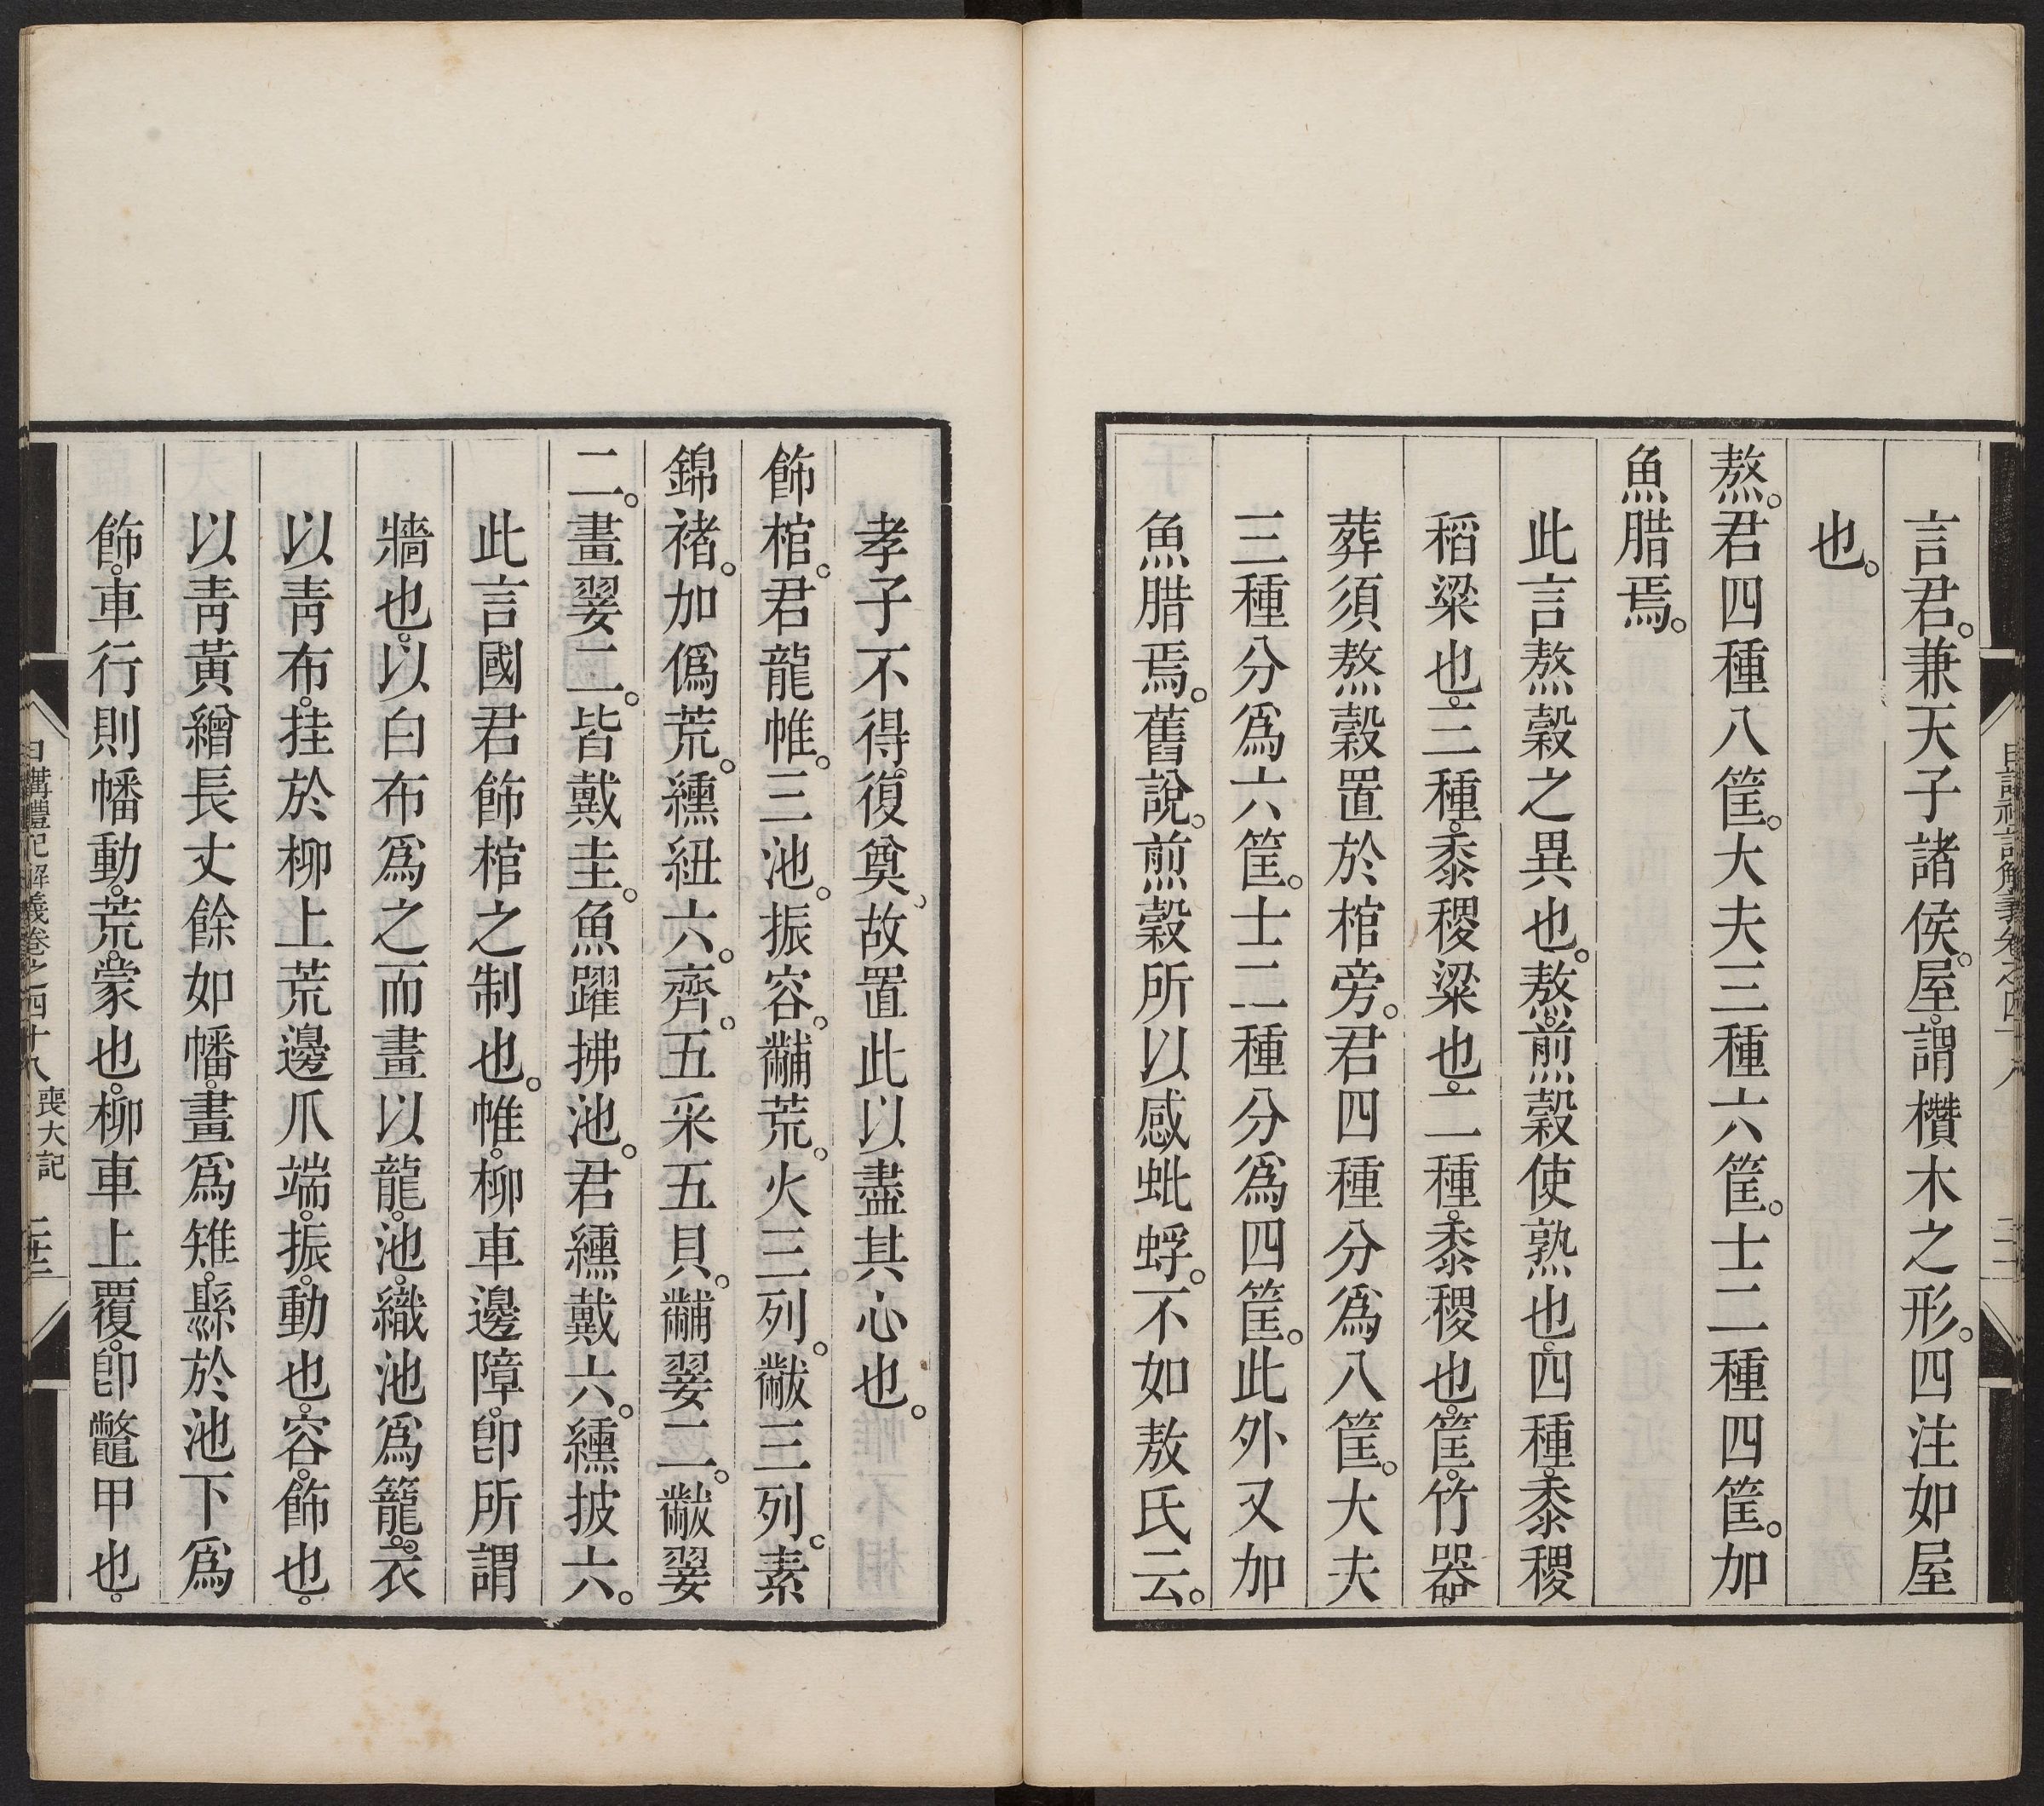 言君。兼天子諸侯。屋。謂欑木之形。四注如屋
也。
熬。君四種八筐。大夫三種六筐。士二種四筐。加
魚腊焉。
此言熬穀之異也。熬。煎穀使熟也。四種。黍稷
稻粱也。三種。黍稷粱也。二種。黍稷也。筐。竹器。
葬須熬穀置於棺旁。君四種分爲八筐。大夫
三種分爲六筐。士二種分爲四筐。此外又加
魚腊焉。舊說。煎穀所以感蚍蜉。不如敖氏云。
日講禮記解義卷之四十八
孝子不得復奠、故置此以盡其心也。
飾棺。君龍帷。三池。振容。黼荒。火三列。黻三列。素
錦褚。加僞荒。纁紐六。齊。五采五貝。黼翣二。黻翣
二。畫翣二。皆戴圭。魚躍拂池。君纁戴六。纁披六。
此言國君飾棺之制也。帷。柳車邊障。卽所謂
牆也。以白布爲之而畫以龍。池。織池爲籠。衣
以靑布。挂於柳上荒邊爪端。振。動也。容。飾也。
以靑黃繒長丈餘如幡。畫爲雉。縣於池下爲
飾。車行則幡動。荒。蒙也。柳車上覆。卽鼈甲也。
日講禮記解義卷之四十八 喪大記